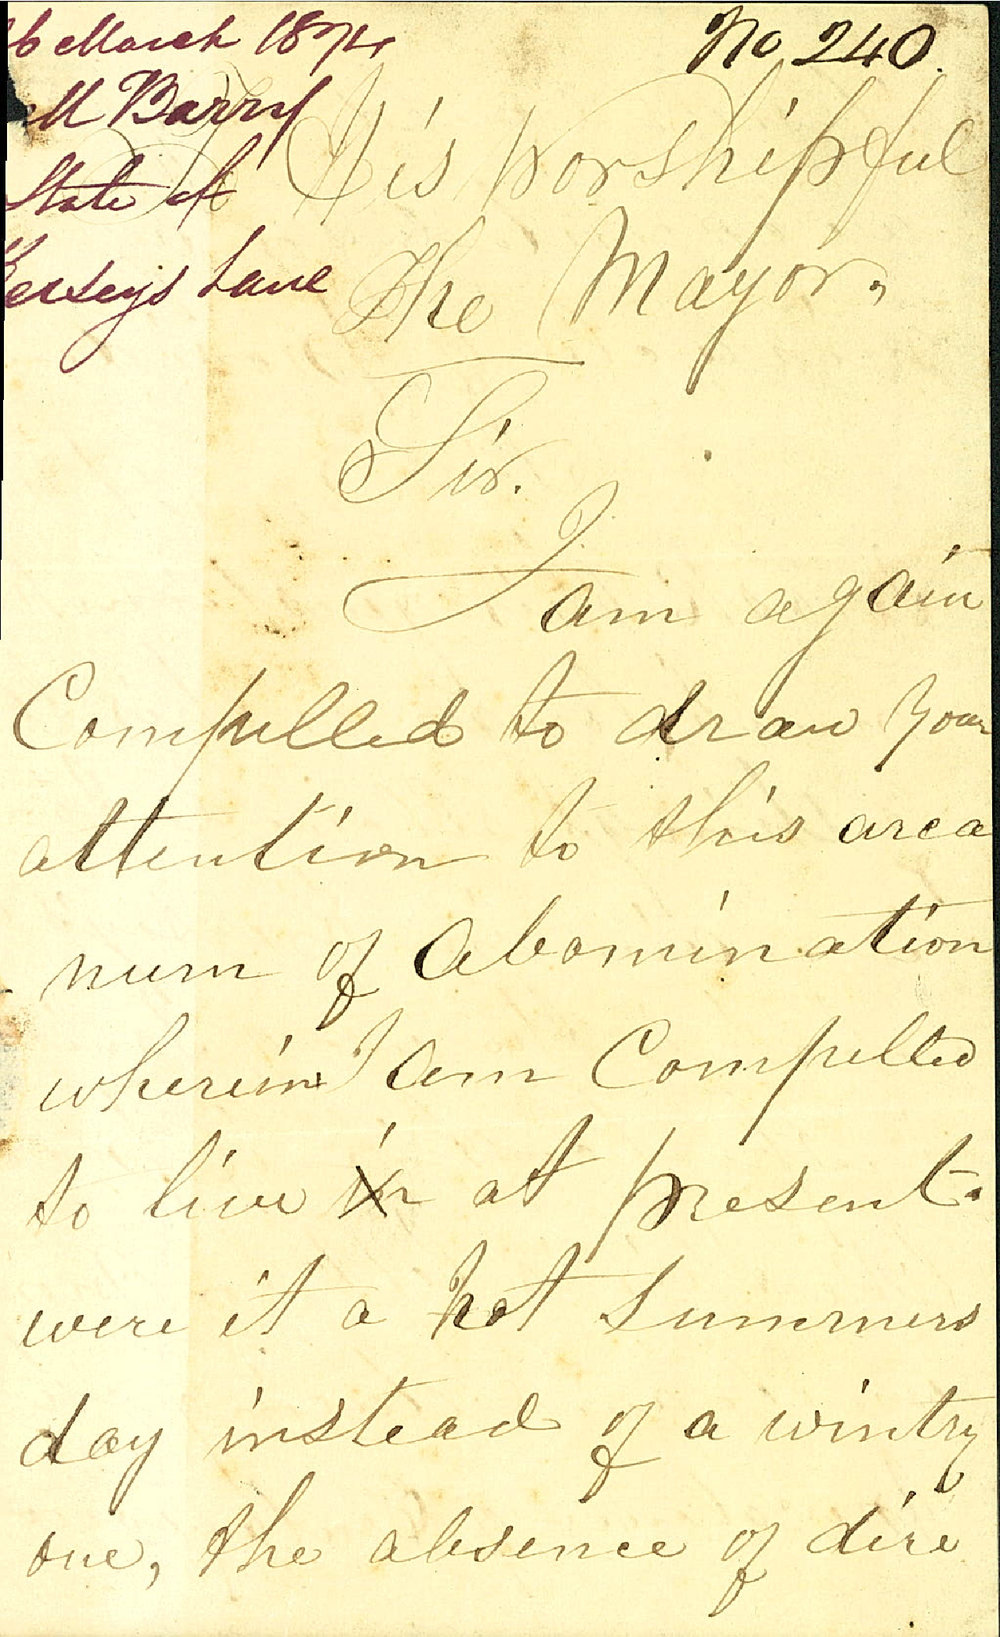 6 March 1874
No 240.
M Barry
State of
Kerseys Lane
His Worshipful
The Mayor,
Sir.
I am again
Compelled to draw your
attention to this area
num of Abomination
wherein I am Compelled
to live in at present.
were it a hot Summers
day instead of a wintry
one, the absence of dire